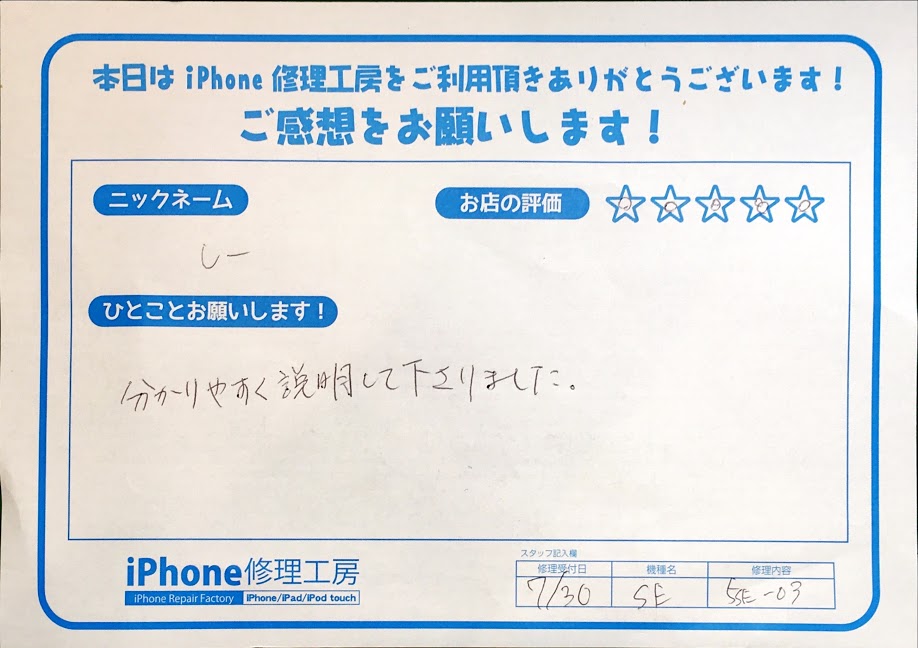 本日は iPhone 修理工房をご利用頂きありがとうございます！
ご感想をお願いします！
ニックネーム
お店の評価
しー
ひとことお願いします！
分かりやすく説明して下さりました。
iPhone修理工房
iPhone Repair Factory iPhone/iPad/iPod touch
スタッフ記入欄
修理受付日 機種名 修理内容
7/30 SE 5SE-03